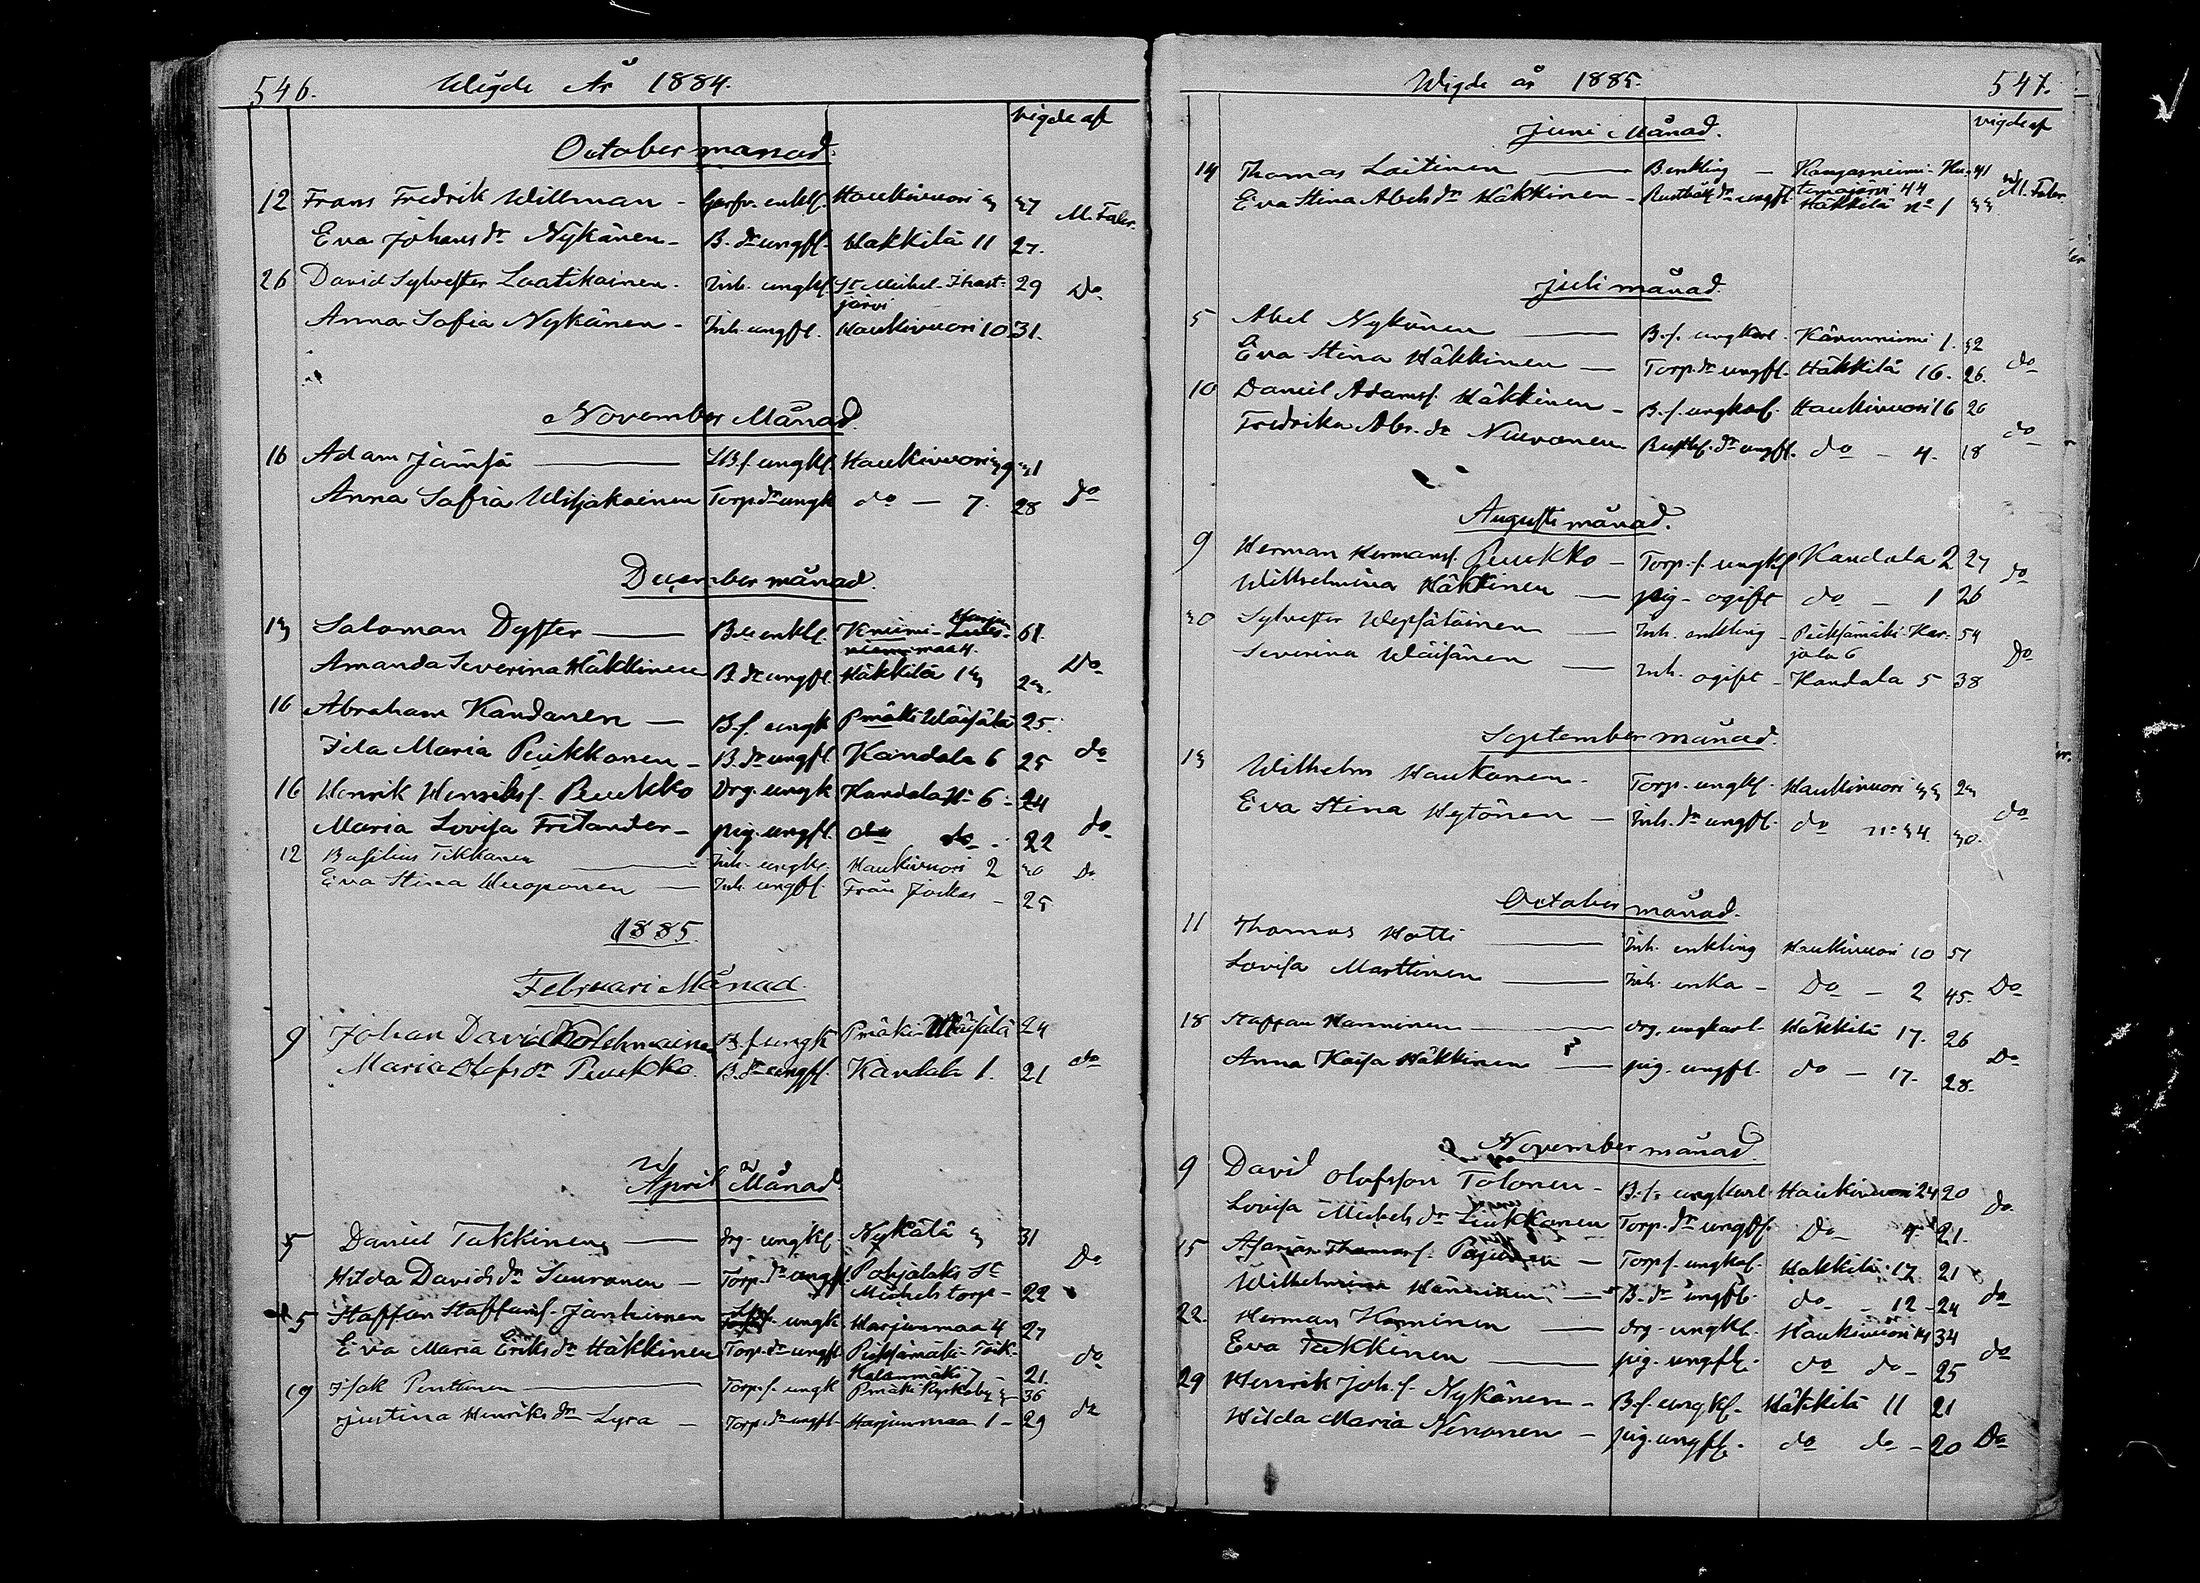 546. Wigde År 1884.
vigde af
October manad.
12 Frans Fredrik Willman - enkl. Haukivuori 3 37 M. Faler.
Eva Johans dr Nykänen - B. dr ungfl. Häkkilä 11 27.
26 David Sylvester Laatikainen - Inh. ungkl. St Michel - Ihast- 29 Do
järvi
Anna Sofia Nykänen - Inh. ungfl. Haukivuori 10 31.
November Månad.
16 Adam Jämsä — ungkl. Haukivuori 39 31
Anna Sofia Wiljakainen Torp. dr ungk do — 7. 28 do
December månad.
13 Saloman Dyster — enkl. Kniemi - 61.
maa 4.
Amanda Severina Häkkinen B. dr ungfl. Häkkilä 13 23. Do
16 Abraham Kandanen — B. s. ungk Pmäki Wäisälä 25.
Ida Maria Puukkonen - B. dr ungfl. Kandala 6 25 do
16 Henrik Henriks s. Puukko Drg. ungk Kandala No 6 - 24
Maria Lovisa Frilander - pig. ungfl. do do - 22 do
12 Basilius Tikkanen — Inh. ungkl. Haukivuori 2 30 Do
Eva Stina Wuoponen — Inh. ungfl. Från Jockas - 25
1885.
Februari Månad.
9 Johan David Kolehmainen B. s. ungk Pmäki Wäisälä 24
Maria Olofs dr Puukko. B. dr ungfl. Kandala 1. 21 do
April Månad
5 Daniel Tukkinen — drg. ungkl. Nykälä 3 31
Hilda Davids dr Sauranen — Torp. dr ungfl. Pohjalaks St Do
Michels torp - 22
5 Staffan Staffans s. Jantunen ungk. Harjunmaa 4 27
Eva Maria Eriks dr Häkkinen Torp. dr ungfl. Pieksämäki - do
7 - 21.
19 Isak Pentinen — Torp. s. ungk Pmäki Kyrkoby 3 - 36
Justina Henriks dr Lyra — Torp. dr ungfl. Harjunmaa 1 - 29 do
Wigde år 1885. 547.
vigde af
Juni Månad.
14 Thomas Laitinen — B. enkling - Kangasniemi - 41 M. Faler.
44
Eva Stina Abels dr Häkkinen - dr ungfl. Häkkilä No 1 33
Juli månad.
5 Abel Nykänen — B. s. ungkarl. 1. 32
Eva Stina Häkkinen — Torp. dr ungfl. Häkkilä 16. 26. do
10 Daniel Adams s. Häkkinen - B. s. ungkarl. Haukivuori 16 26
Fredrika Abr. dr Niiranen dr ungfl. do - 4. 18 do
Augusti månad.
9 Herman Hermans s. Puukko - Torp. s. ungkl Kandala 2 27 do
Wilhelmina Häkkinen — pig - ogift do — 1 26
30 Sylvester Wepsäläinen — Inh. enkling - Pieksämäki Kar- 54
jala 6 Do
Severina Wäisänen — Inh. ogift - Kandala 5 38
September månad.
13 Wilhelm Haukanen - Torp. ungkl. Haukivuori 33 23
Eva Stina Hytönen — Inh. dr ungfl. do no 34. 30. do
October månad.
11 Thomas Hotti — Inh. enkling Haukivuori 10 51
Lovisa Marttinen — Inh. enka - Do - 2 45. Do
18 Staffan Hanninen — drg. ungkarl - Häkkilä 17. 26
Anna Kaisa Häkkinen — pig. ungfl. do — 17. 28. Do
November månad.
9 David Olofsson Tolonen - B. s. ungkarl Haukivuori 24 20 do
Lovisa Michels dr Liukkonen Torp. dr ungfl. Do - 21.
15 Asarias Thomas s. Pajunen — Torp s. ungkarl. Häkkilä 17 21
Wilhelmina Hänninen — B. dr ungfl. do - 12 - 24 do
22. Herman Haminen — drg - ungkl. Haukivuori 14 34
Eva Tukkinen — pig. ungfl. do do - 25 do
29 Henrik Joh. s. Nykänen - B. s. ungkl. Häkkilä 11 21
Hilda Maria Nenonen — pig. ungfl. do do - 20 Do